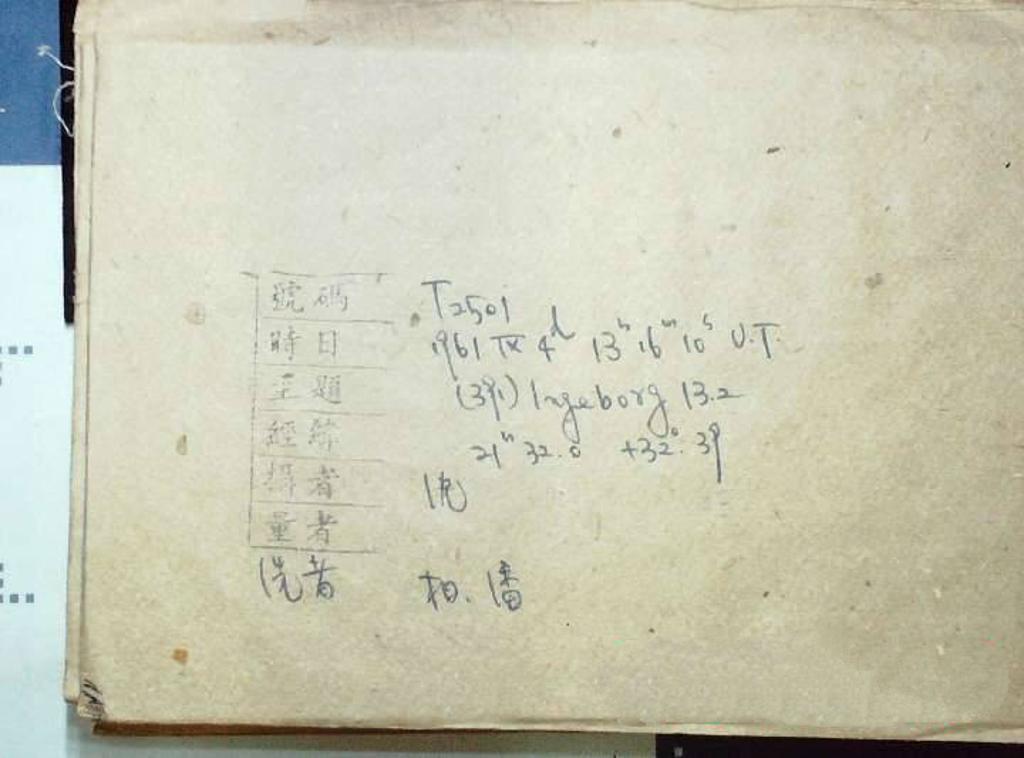 號碼 T2501
時日 1961 IX 4d 13h 16m 10s U.T.
主題 (391) Ingeborg 13.2
經緯 21h 32.0 +32°.39
攝者 沈
量者
洗者 相. 潘